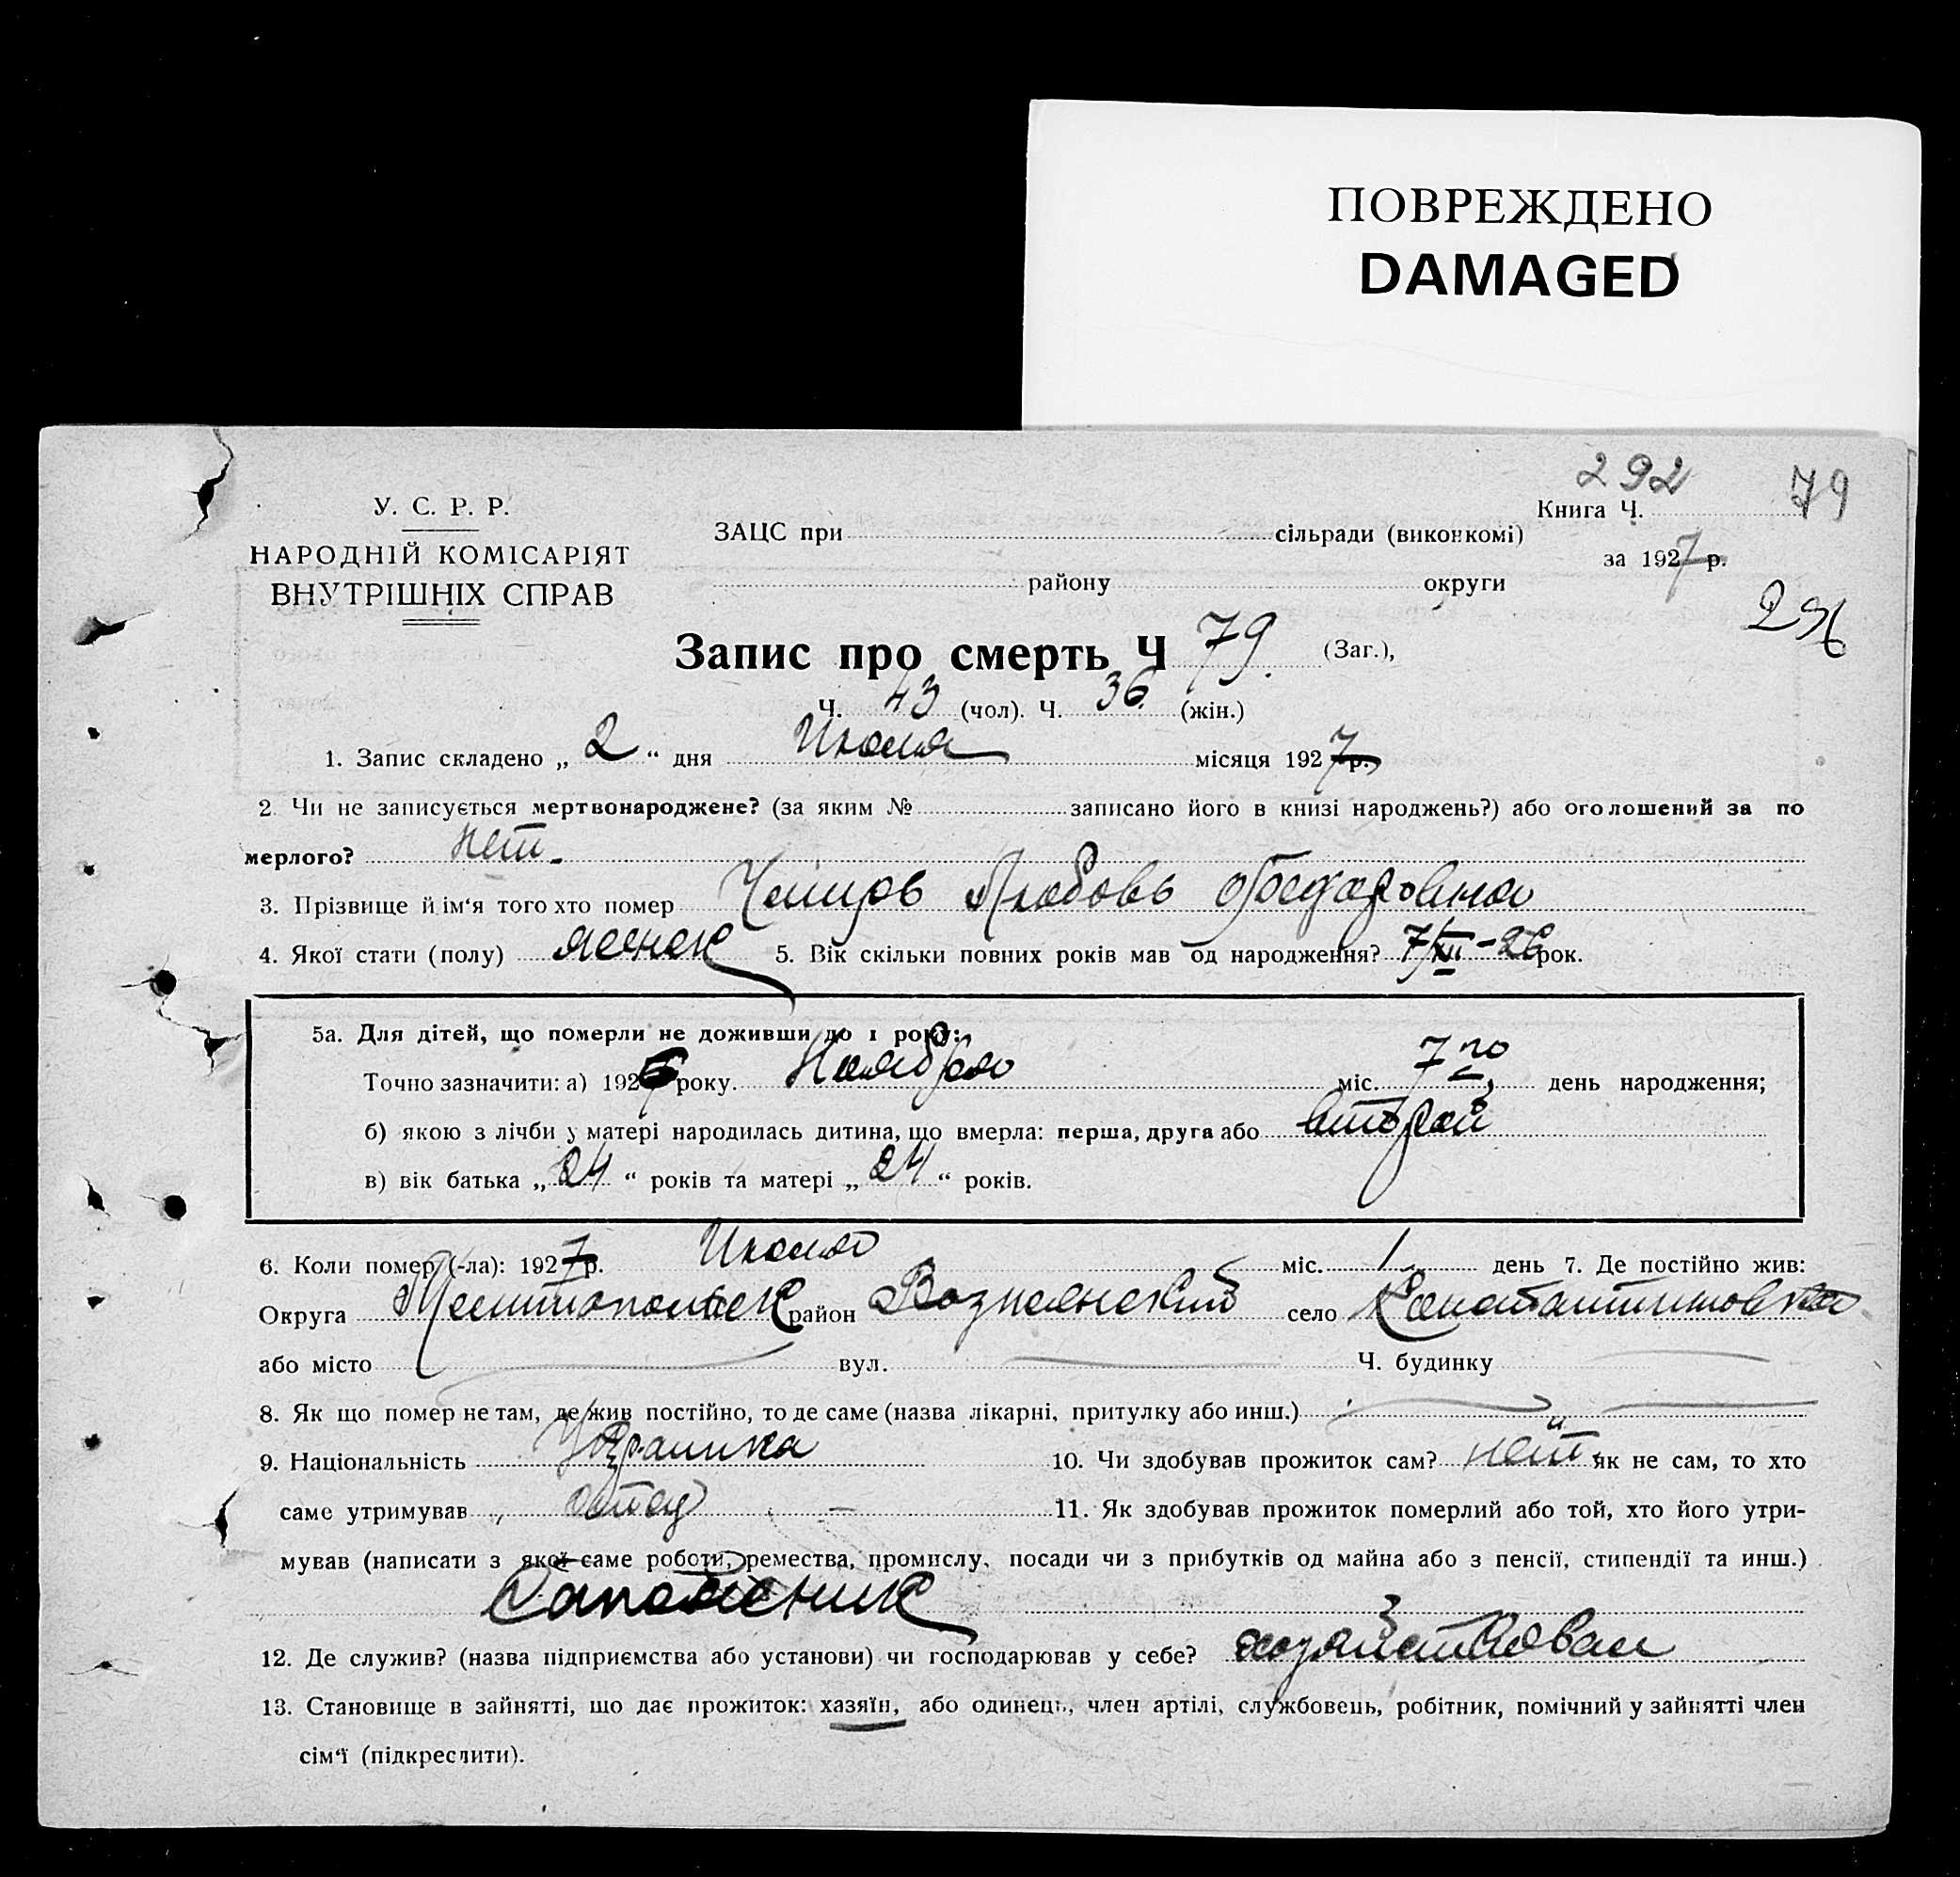 ПОВРЕЖДЕНО
DAMAGED
292
79
У. С. Р. Р.
НАРОДНІЙ КОМІСАРІЯТ
ВНУТРІШНІХ СПРАВ
Книга Ч.
ЗАЦС при сільради (виконкомі)
за 1927 р.
району округи
Запис про смерть Ч 79. (Заг.),
Ч. 43 (чол). Ч. 36. (жін.)
1. Запис складено „ 2 “ дня Июля місяця 1927 р.
2. Чи не записується мертвонароджене? (за яким № записано його в книзі народжень?) або оголошений за по
мерлого? нет.
3. Прізвище й ім‘я того хто помер Любовь
4. Якої стати (полу) женск 5. Вік скільки повних років мав од народження? 7/XI-26 рок.
5а. Для дітей, що померли не доживши до 1 року:
Точно зазначити: а) 1926 року. Ноября міс. 7го день народження;
б) якою з лічби у матері народилась дитина, що вмерла: перша, друга або второй
в) вік батька „ 24 “ років та матері „ 24 “ років.
6. Коли помер (-ла): 1927 р. Июля міс. 1 день 7. Де постійно жив:
Округа Мелитопольск район Вознесенский село Константиновка
або місто вул. Ч. будинку
8. Як що помер не там, де жив постійно, то де саме (назва лікарні, притулку або инш.)
9. Національність Украинка 10. Чи здобував прожиток сам? нет як не сам, то хто
саме утримував отец 11. Як здобував прожиток померлий або той, хто його утри-
мував (написати з якої саме роботи, ремества, промислу, посади чи з прибутків од майна або з пенсії, стипендії та инш.)
Сапожник
12. Де служив? (назва підприємства або установи) чи господарював у себе? хозяйствовал
13. Становище в зайнятті, що дає прожиток: хазяїн, або одинець, член артілі, службовець, робітник, помічний у зайнятті член
сім‘ї (підкреслити).